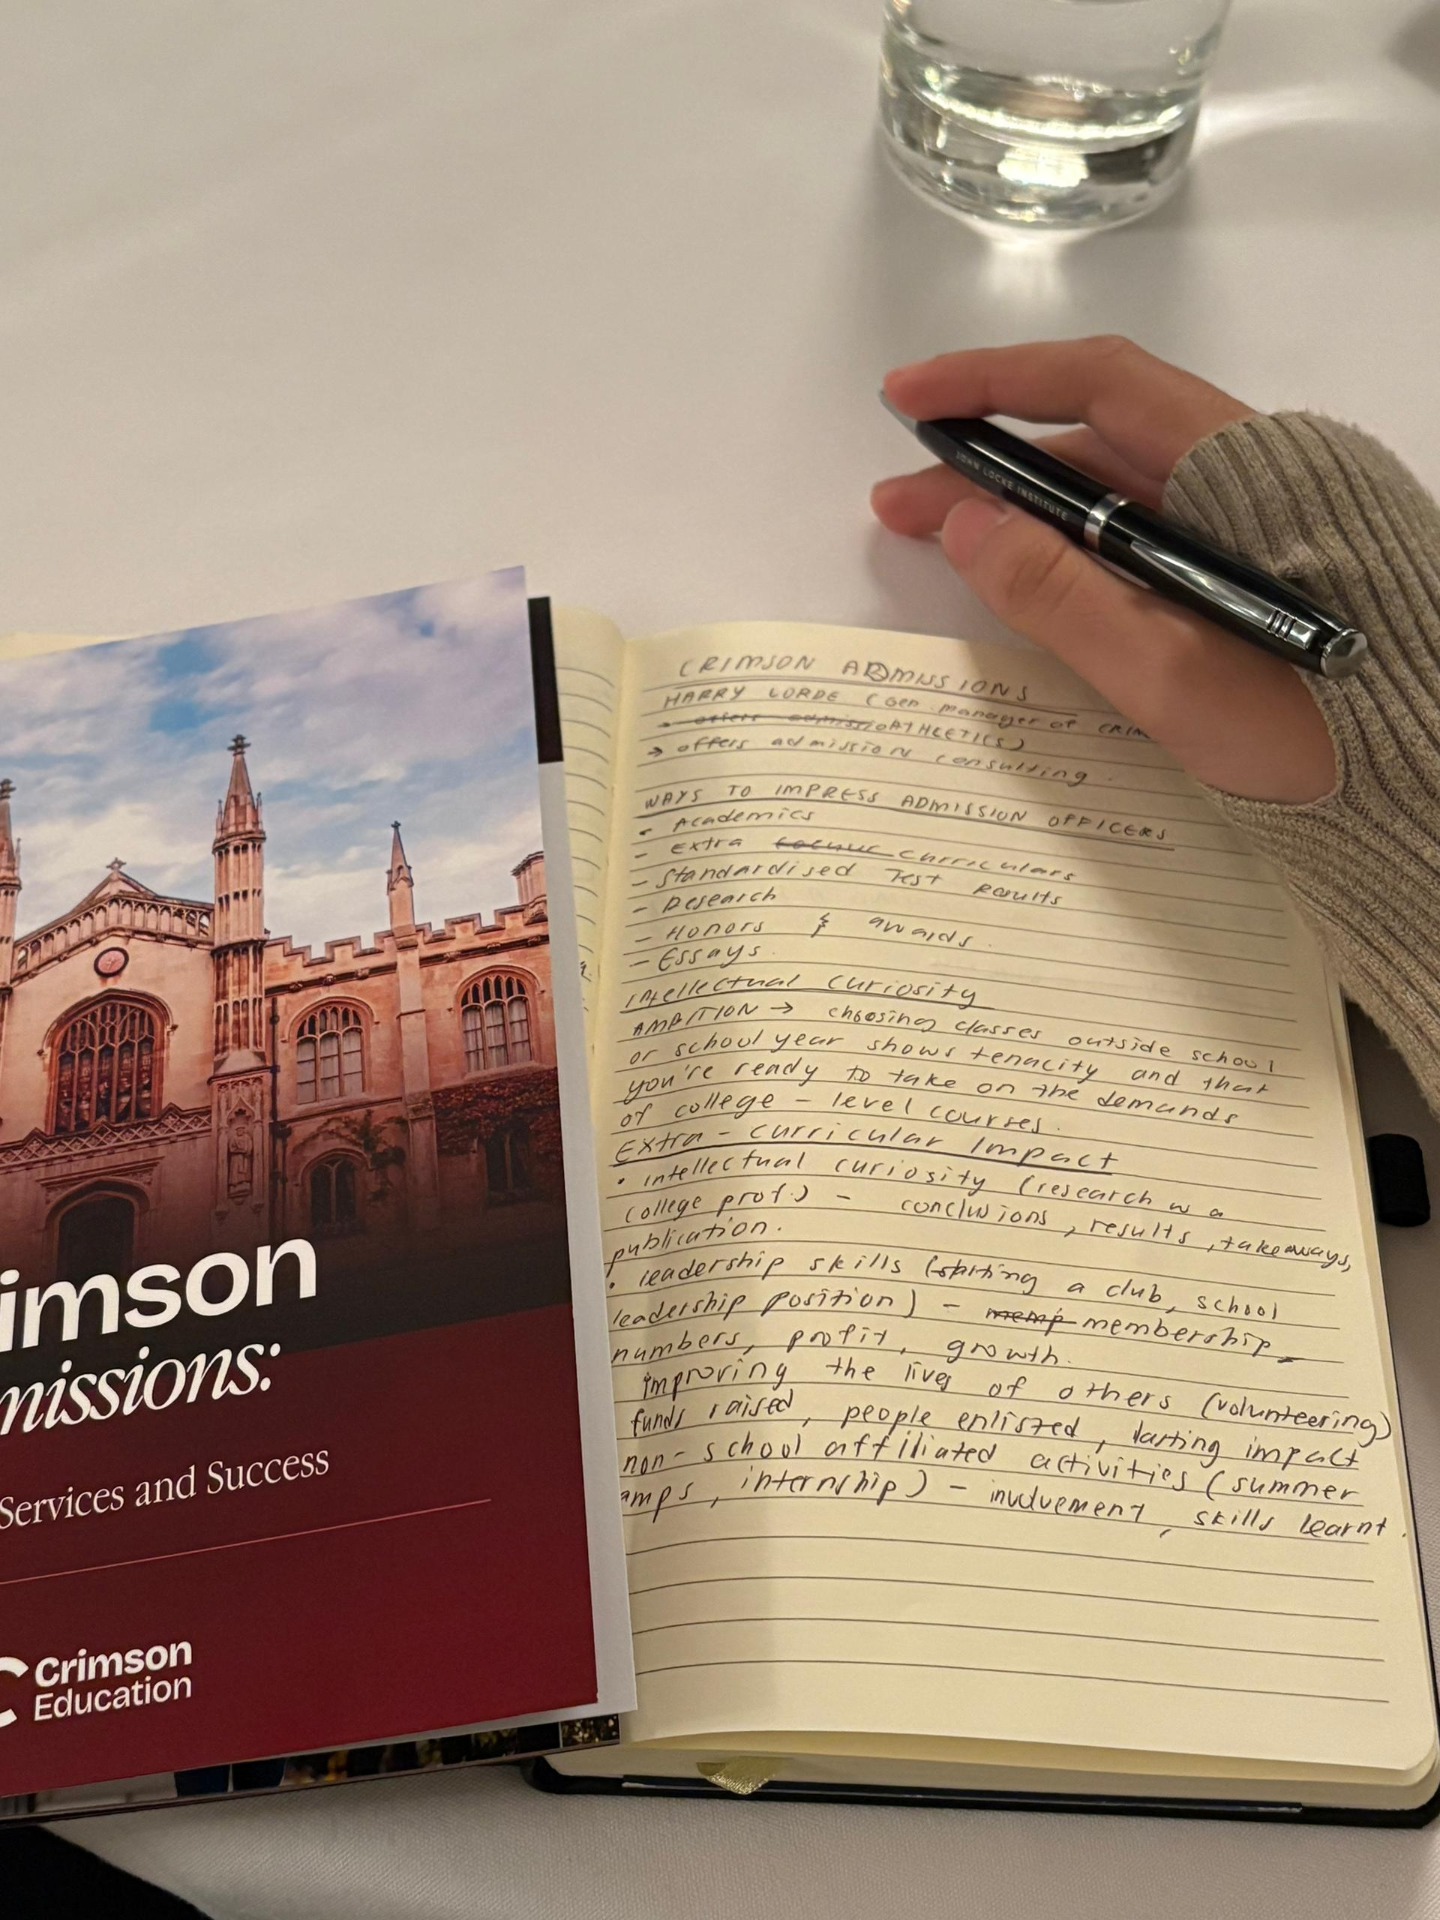 JOHN LOCKE INSTITUTE
CRIMSON ADMISSIONS
HARRY LORDE (Gen. manager of CRIM
ATHLETICS)
→ offers admission consulting.
WAYS TO IMPRESS ADMISSION OFFICERS
- Academics
- Extra curriculars
- Standardised Test Results
- Research
- Honors & awards.
- Essays.
Intellectual curiosity
AMBITION → choosing classes outside school
or school year shows tenacity and that
you're ready to take on the demands
of college - level courses.
Extra - curricular Impact
• intellectual curiosity (research w a
college prof.) - conclusions, results, takeaways,
publication.
• leadership skills (starting a club, school
leadership position) - membership
numbers, profit, growth.
improving the lives of others (volunteering)
funds raised, people enlisted, lasting impact
non-school affiliated activities (summer
amps, internship) - involvement, skills learnt.
imson
missions:
Services and Success
Crimson
Education